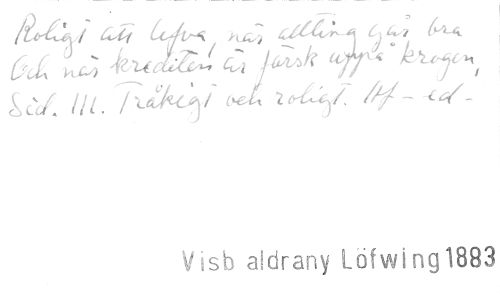 Roligt att lefva, när allting går bra
Och när krediten är färsk uppå krogen,
Sid. 111. Tråkigt och roligt. Af -ed-
Visb aldrany Löfwing 1883